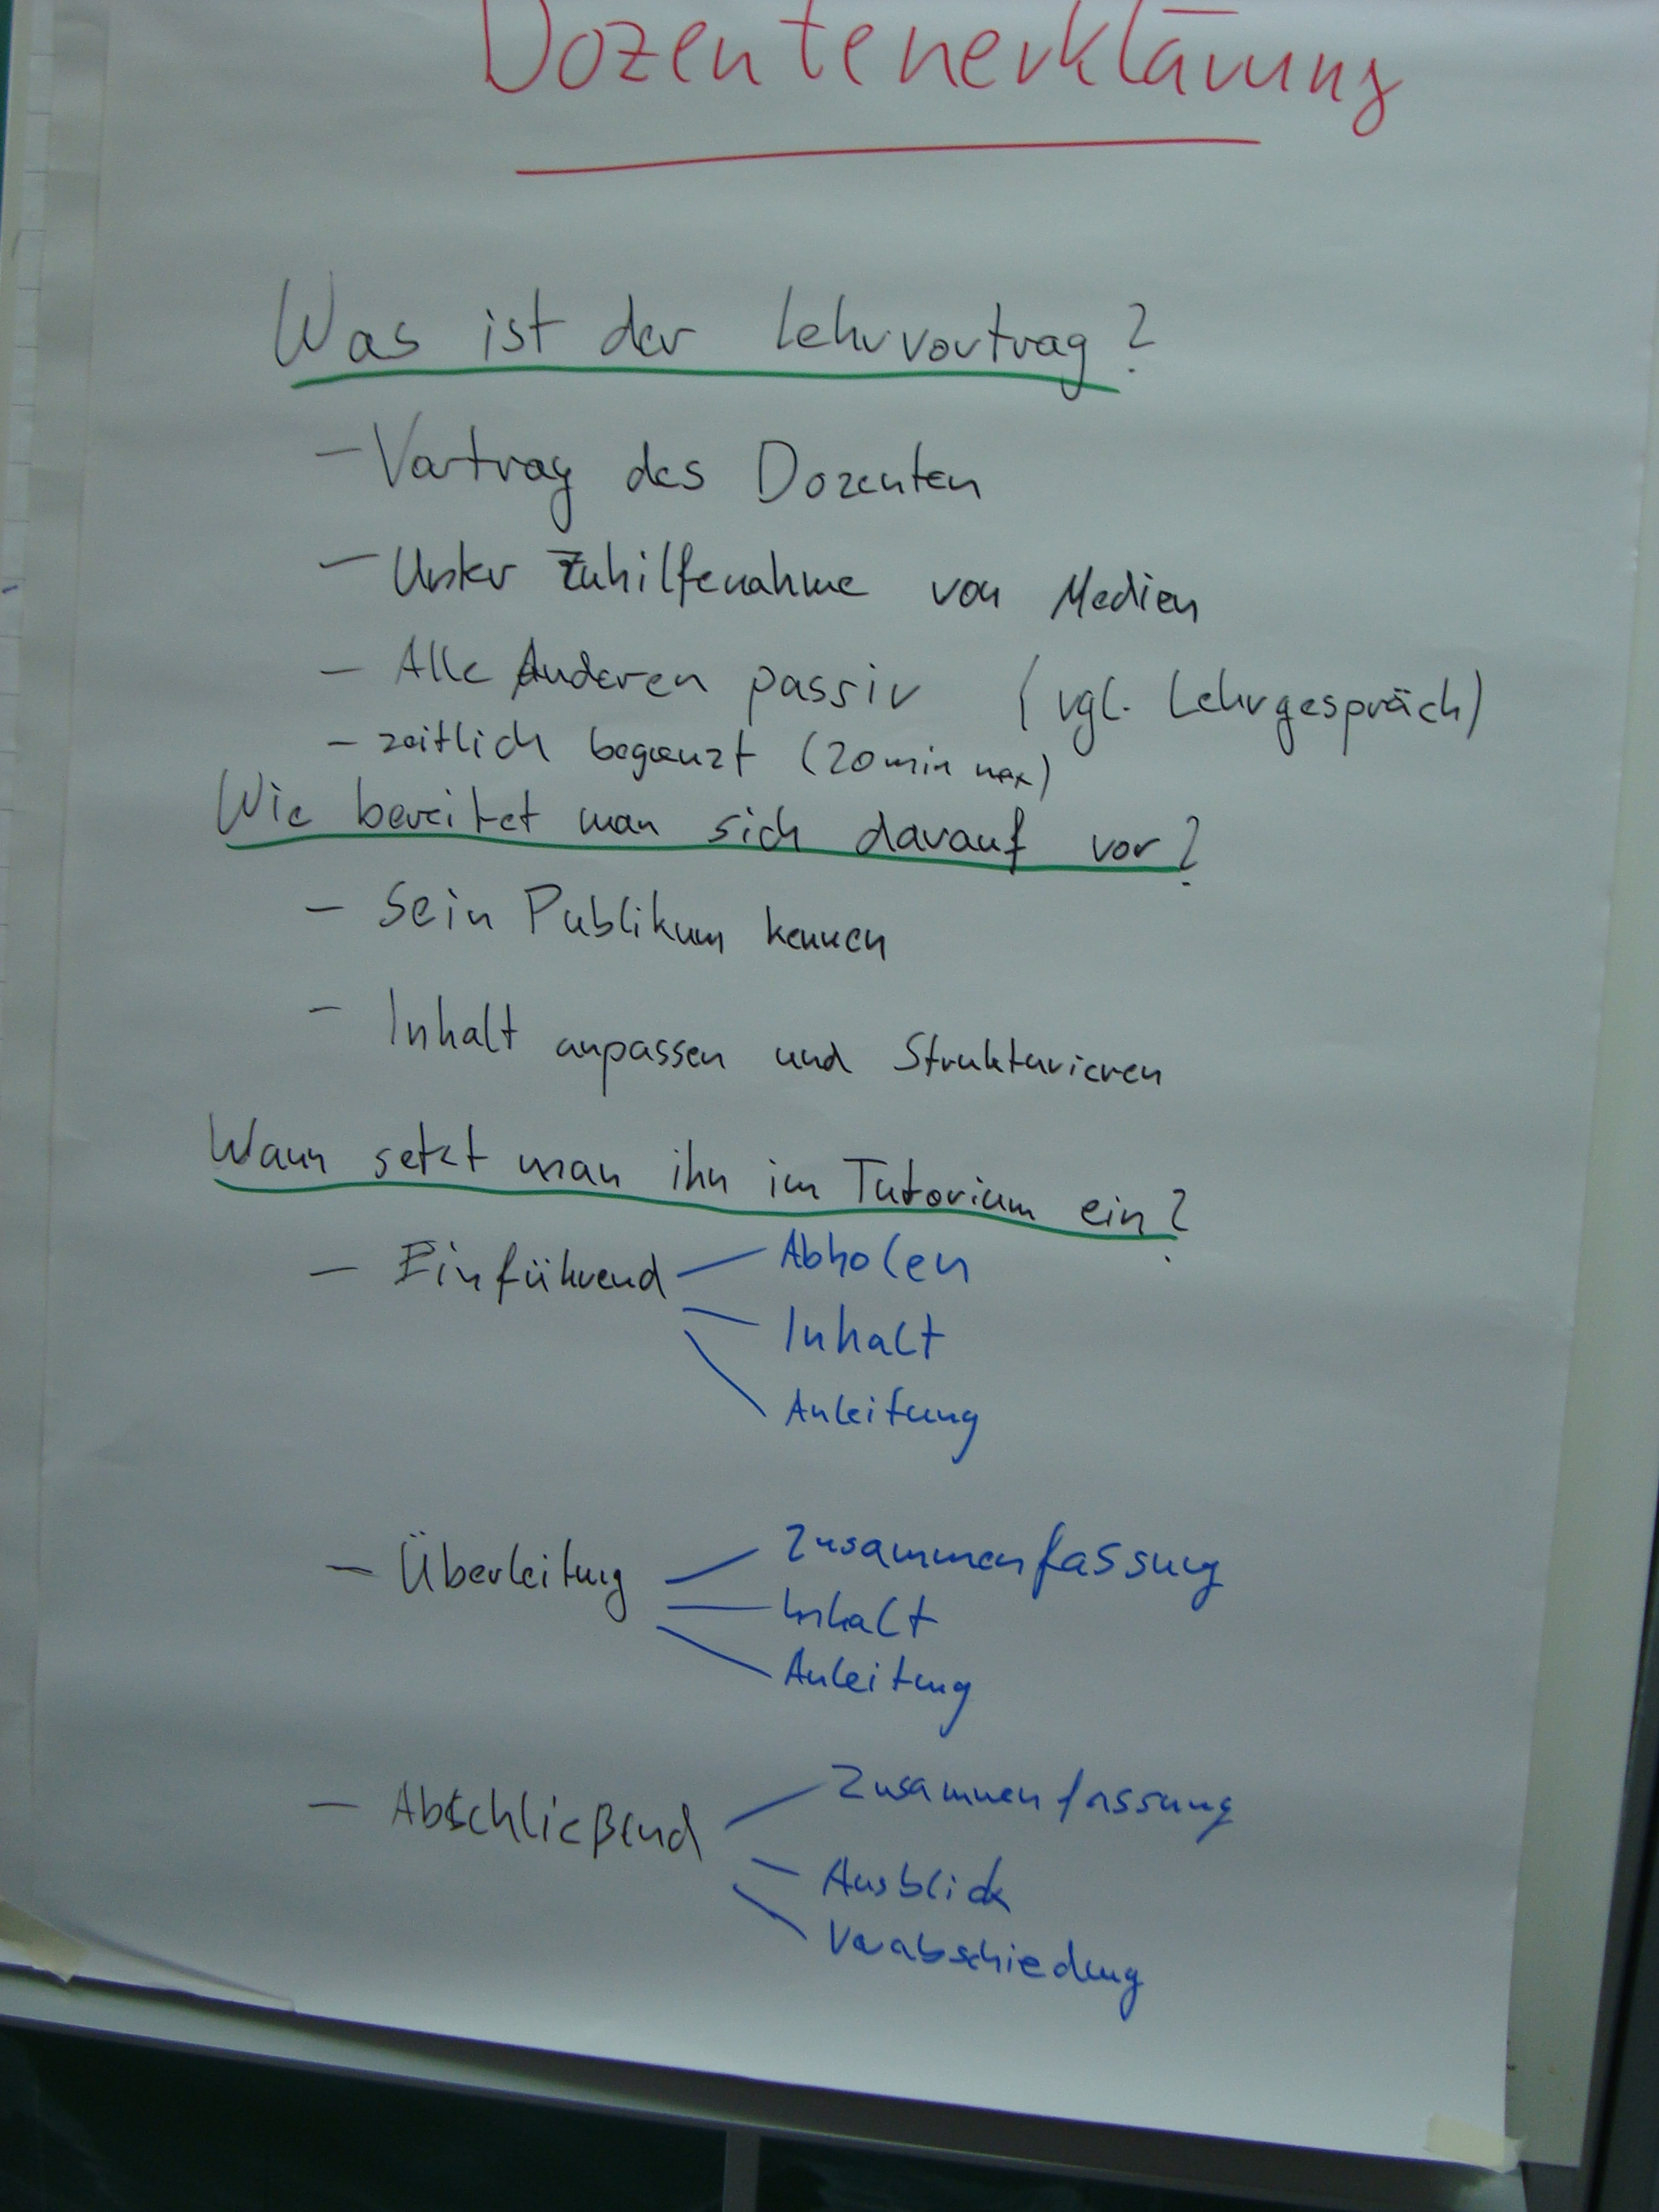 Dozentenerklärung
Was ist der Lehrvortrag?
- Vortrag des Dozenten
- Unter Zuhilfenahme von Medien
- Alle Anderen passiv (vgl. Lehrgespräch)
- zeitlich begrenzt (20min max)
Wie bereitet man sich darauf vor?
- Sein Publikum kennen
- Inhalt anpassen und Strukturieren
Wann setzt man ihn im Tutorium ein?
- Einführend
Abholen
Inhalt
Anleitung
- Überleitung
Zusammenfassung
Inhalt
Anleitung
- Abschließend
Zusammenfassung
Ausblick
Verabschiedung